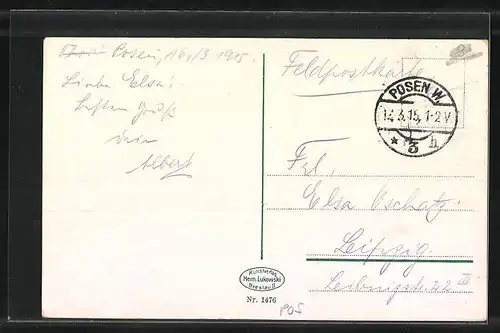 Posen, 16./3 1915.
Liebe Elsa!
Besten Gruß
Dein
Albert
Feldpostkarte
POSEN W.
3.15. 1-2 V
* 3 h
Frl.
Elsa Oschatz.
Leipzig
Leibnizstr. 22 III
Kunstverlag
Herm. Lukowski
Breslau II
Nr. 1476
POS